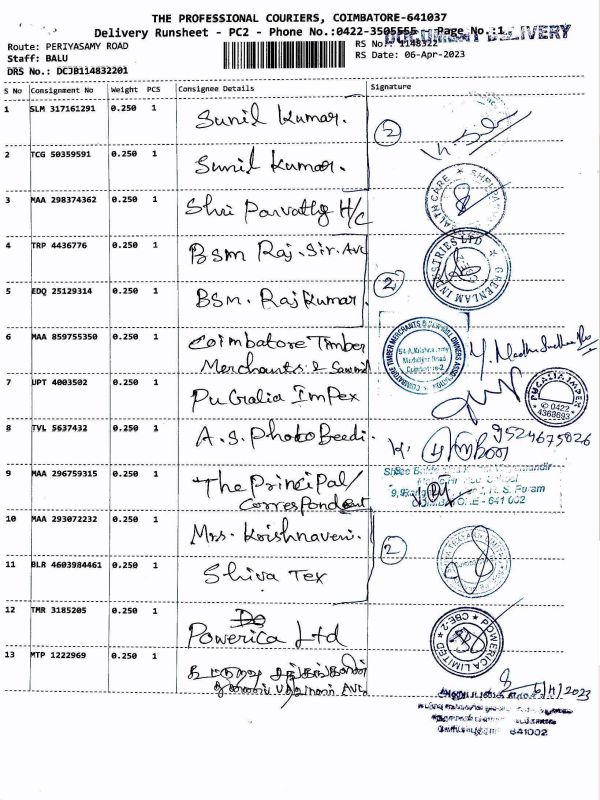 THE PROFESSIONAL COURIERS, COIMBATORE-641037
Delivery Runsheet - PC2 - Phone No.:0422-3505555 Page No.:1
DOCUMENT DELIVERY
Route: PERIYASAMY ROAD
RS No.: 1148322
Staff: BALU
RS Date: 06-Apr-2023
DRS No.: DCJB114832201
S No Consignment No Weight PCS Consignee Details Signature
1 SLM 317161291 0.250 1 Sunil Kumar. 2
2 TCG 50359591 0.250 1 Sunil Kumar.
3 MAA 298374362 0.250 1 Shri Parvathy H/C
4 TRP 4436776 0.250 1 BSM Raj. Sir. Ave
GREENLAM INDUSTRIES LTD
5 EDQ 25129314 0.250 1 BSM. RajKumar. 2
6 MAA 859755350 0.250 1 Coimbatore Timber
Merchants & Sawmil
COIMBATORE TIMBER MERCHANTS & SAWMILL OWNERS ASSOCIATION
7 UPT 4003502 0.250 1 Pugalia Impex
PUGALIA IMPEX
0422
4368693
8 TVL 5637432 0.250 1 A.S. Photo Beedi. 9524675026
9 MAA 296759315 0.250 1 The Principal/
Correspondent
R. S. Puram
COIMBATORE - 641 002
10 MAA 293072232 0.250 1 Mrs. Krishnaveni. 2
11 BLR 4603984461 0.250 1 Shiva Tex
12 TMR 3185205 0.250 1 Powerica Ltd
POWERICA LIMITED CBE-2
13 MTP 1222969 0.250 1
6/4/2023
641002